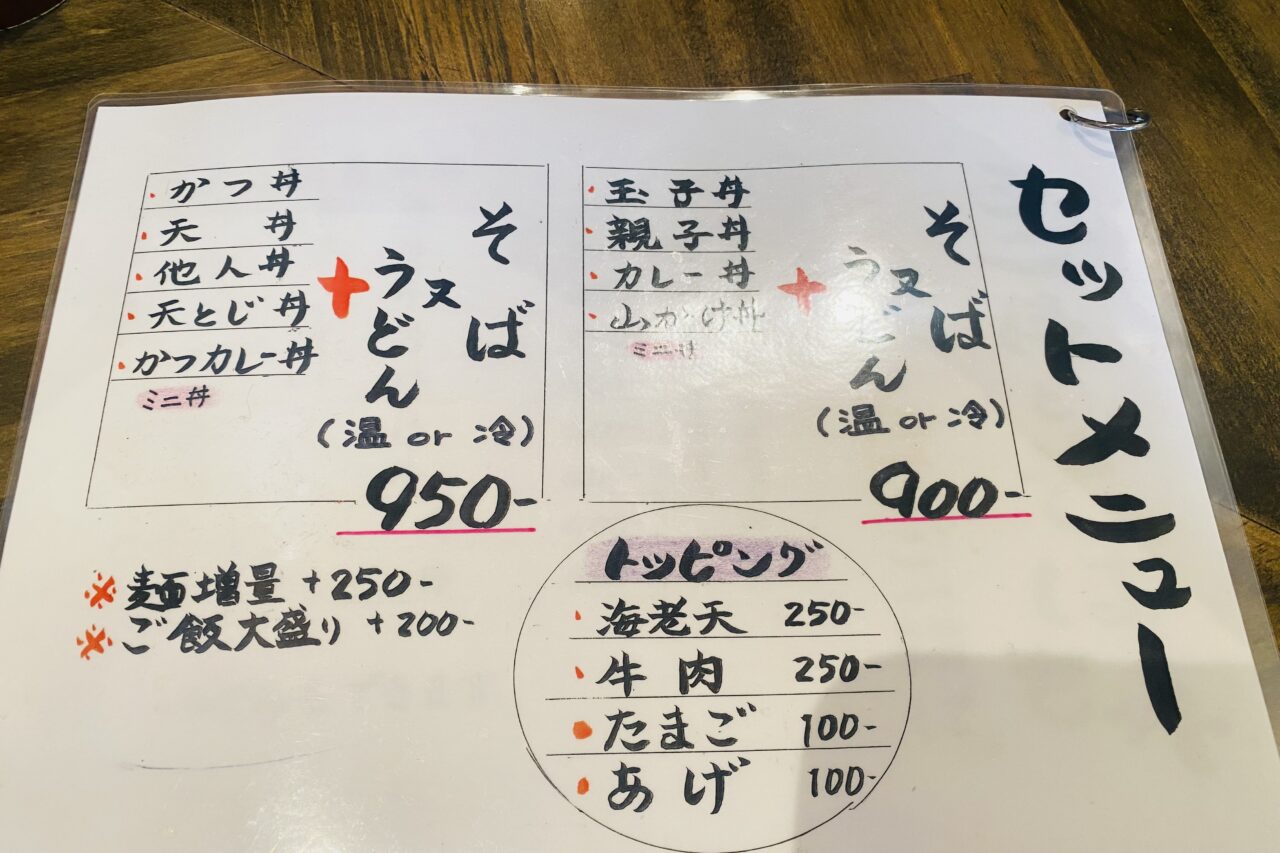 セットメニュー
・玉子丼
・親子丼
・カレー丼
・山かけ丼
ミニ丼
+
そば
又
うどん
(温 or 冷)
900-
・かつ丼
・天丼
・他人丼
・天とじ丼
・かつカレー丼
ミニ丼
+
そば
又
うどん
(温 or 冷)
950-
トッピング
・海老天 250-
・牛肉 250-
・たまご 100-
・あげ 100-
※麺増量 +250-
※ご飯大盛り +200-